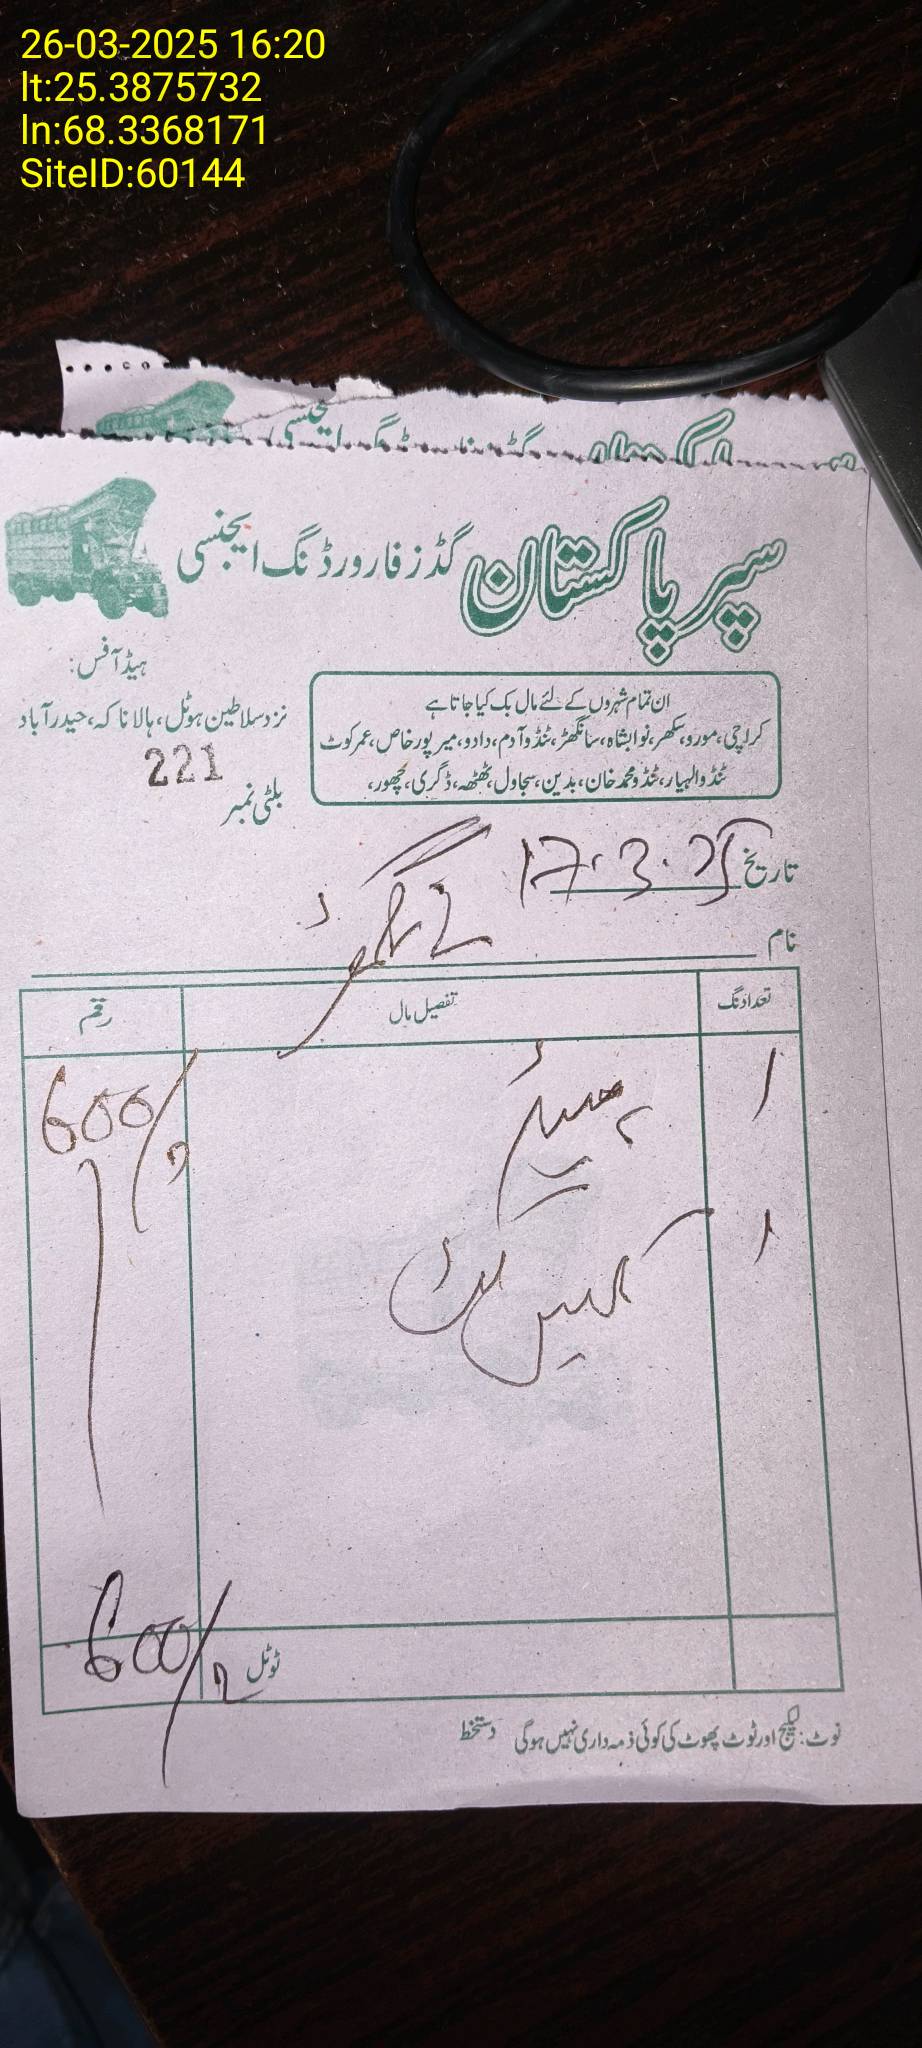 26-03-2025 16:20
lt:25.3875732
ln:68.3368171
SiteID:60144
سپر پاکستان گڈز فارورڈنگ ایجنسی
ہیڈ آفس:
نزد سلاطین ہوٹل، ہالا ناکہ، حیدرآباد
ان تمام شہروں کے لئے مال بک کیا جاتا ہے
کراچی، مورو، سکھر، نوابشاہ، سانگھڑ، ٹنڈوآدم، دادو، میرپورخاص، عمرکوٹ
ٹنڈوالہیار، ٹنڈومحمدخان، بدین، سجاول، ٹھٹھہ، ڈگری، چھور،
221
بلٹی نمبر
تاریخ 17.3.25
نام
تعداد نگ تفصیل مال رقم
1 600/
1
ٹوٹل 600/
نوٹ: لیکیج اور ٹوٹ پھوٹ کی کوئی ذمہ داری نہیں ہوگی دستخط